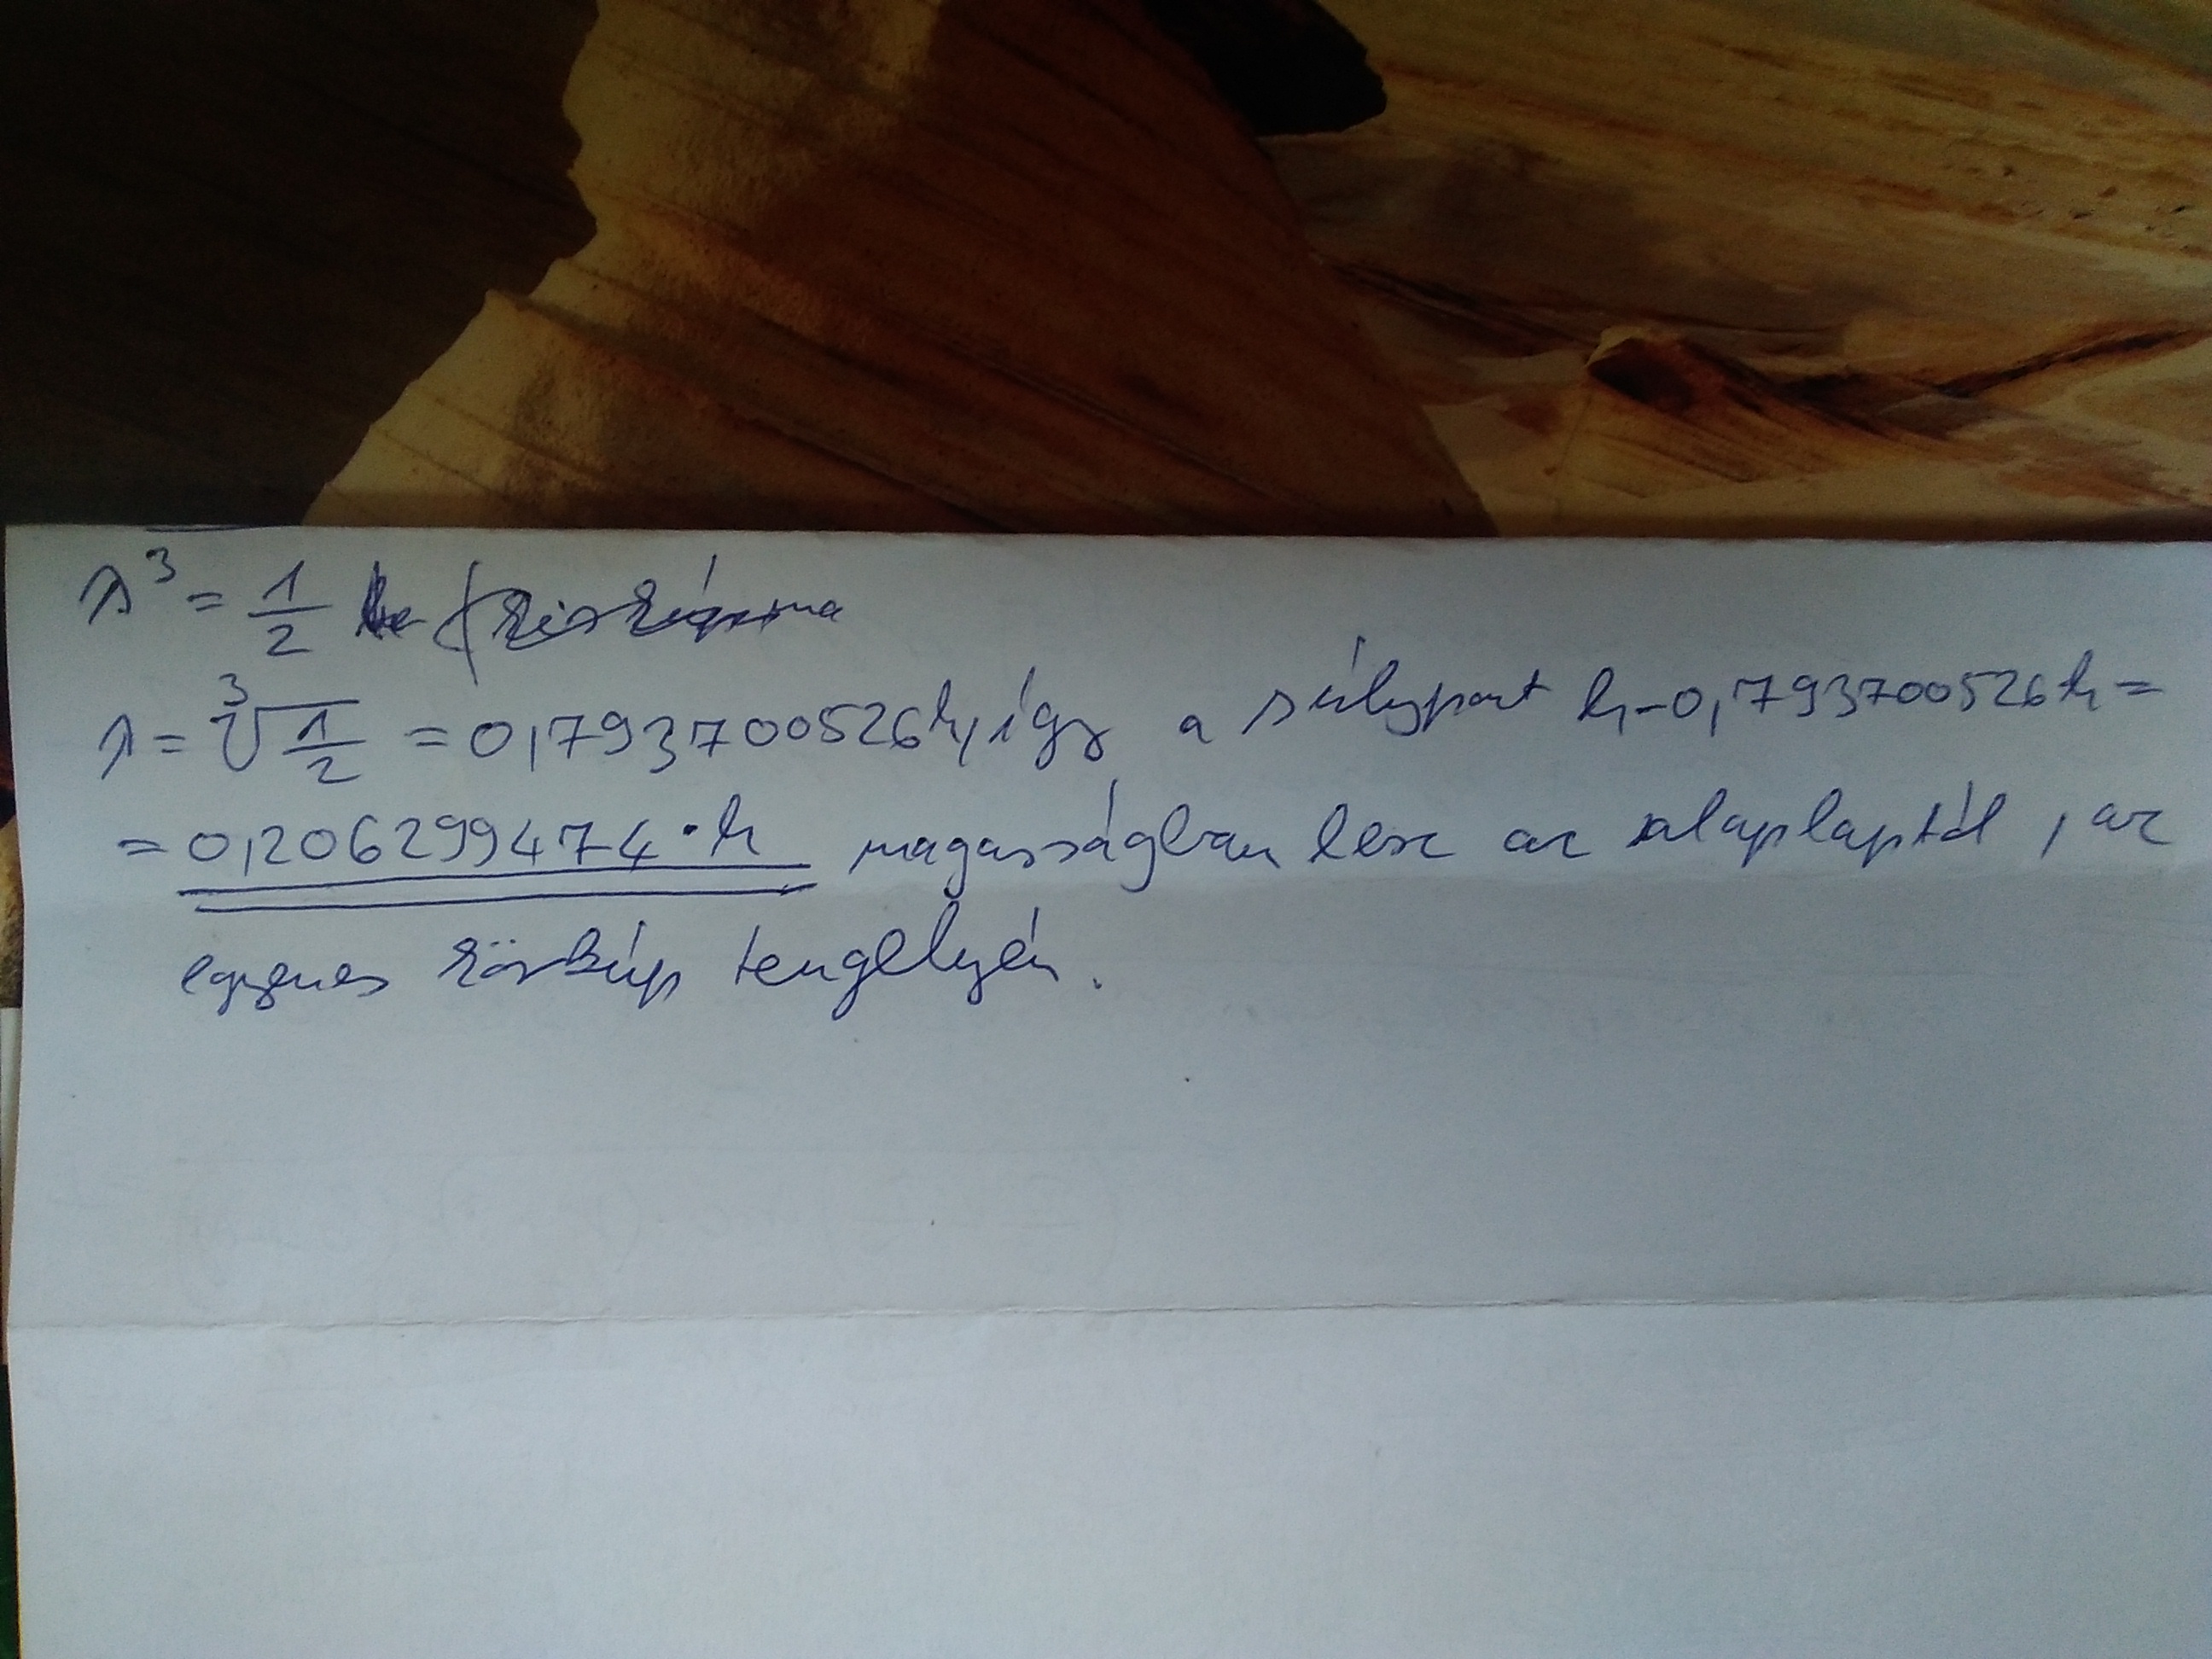 λ³ = 1/2
λ = ∛(1/2) = 0,793700526h, így a súlypont h-0,793700526h =
= 0,206299474·h magasságban lesz az alaplaptól, az
egyenes körkúp tengelyén.